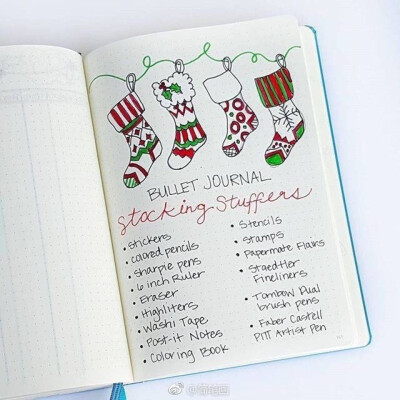 BULLET JOURNAL
Stocking Stuffers
• stickers
• colored pencils
• sharpie pens
• 6 inch Ruler
• Eraser
• Highliters
• Washi Tape
• Post-it Notes
• Coloring Book
• Stencils
• Stamps
• Papermate Flairs
• Staedtler
Fineliners
• Tombow Dual
brush pens
• Faber Castell
PITT Artist Pen